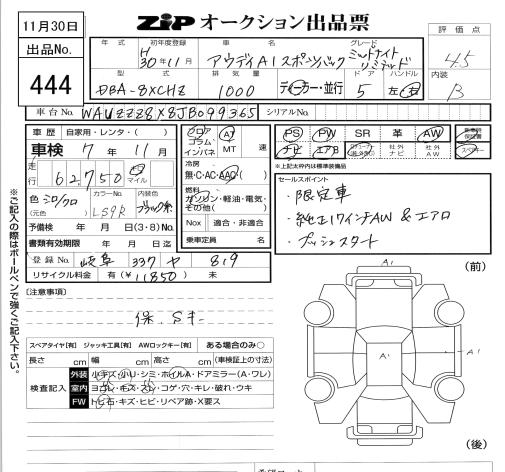 11月30日
出品No.
444
ZIP オークション出品票
評価点
4.5
内装
B
年式 初年度登録 車名 グレード
H30年11月 アウディA1スポーツバック ミッドナイトリミテッド
型式 排気量 ドア ハンドル
DBA-8XCHZ 1000 ディーラー・並行 5 左・右
車台No. WAUZZZ8X8JB099365 シリアルNo.
車歴 自家用・レンタ・( )
車検 7年 11月
走行 62,750 マイル
色 シロ/クロ カラーNo. LS9R 内装色 ブラック系
(元色)
予備検 年 月 日(3・8)No.
書類有効期限 年 月 日迄
登録No 岐阜 337 ヤ 819
リサイクル料金 有(¥11850) 未
フロア AT
コラム
インパネ MT 速
冷房
無・C・AC・AAC( )
燃料
ガソリン・軽油・電気・
その他( )
Nox 適合・非適合
乗車定員 名
PS PW SR 革 AW 新車時保証書
ナビ エアB 社外ナビ 社外AW スペアキー
※上記太枠内は標準装備品
セールスポイント
・限定車
・純正17インチAW & エアロ
・プッシュスタート
[注意事項]
保、Sキー
スペアタイヤ[有] ジャッキ工具[有] AWロックキー[有] ある場合のみ○
長さ cm 幅 cm 高さ cm (車検証上の寸法)
検査記入
外装 小キズ・小リ・シミ・ホイルA・ドアミラー(A・ワレ)
室内 ヨゴレ・キズ・スレ・コゲ・穴・キレ・破れ・ウキ
FW トビ石・キズ・ヒビ・リペア跡・X要ス
※ご記入の際はボールペンで強くご記入下さい。
(前)
A1
A1
A1
(後)